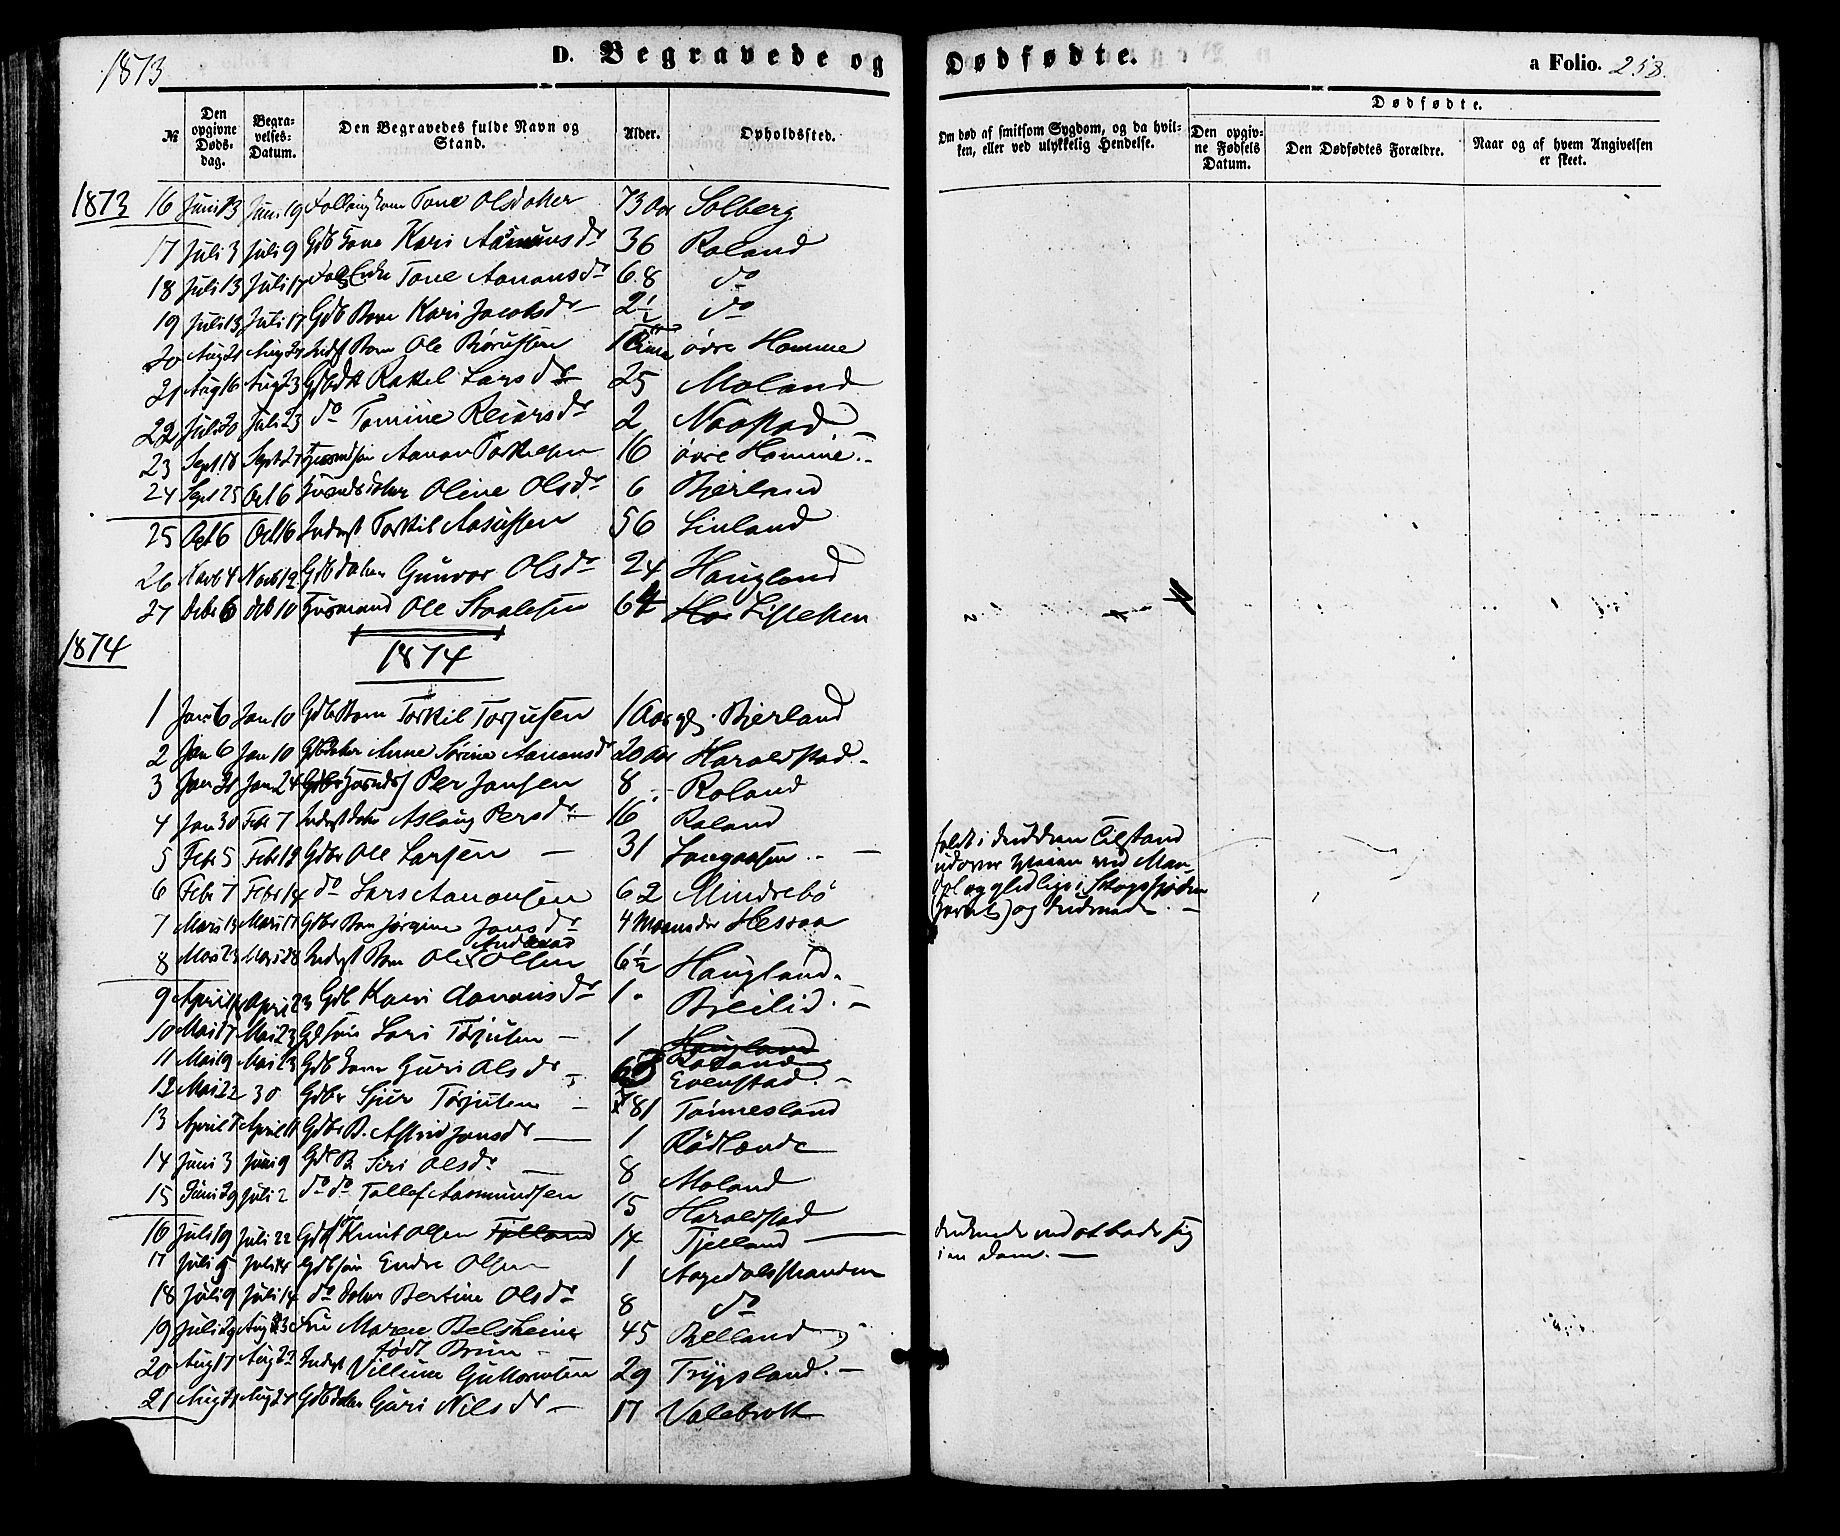 1873
D. Begravede og Dødfødte.
a Folio. 258.
№
Den opgivne Døds-dag.
Begra-velses-Datum.
Den Begravedes fulde Navn og Stand.
Alder.
Opholdssted.
Om død af smitsom Sygdom, og da hvil-ken, eller ved ulykkelig Hendelse.
Dødfødte.
Den opgiv-ne Fødsels Datum.
Den Dødfødtes Forældre.
Naar og af hvem Angivelsen er skeet.
1873
16 Juni 13 Juni 19 Tone Olsdatter 73 Aar Solberg
17 Juli 3 Juli 9 Gdb Kone Kari Aasmunsdr 36 Roland
18 Juli 13 Juli 17 Tone Aanonsdr 68 do
19 Juli 13 Juli 17 Gdb Barn Kari Jacobsdr 2½ do
20 Aug 21 Aug 24 Inds Barn Ole Bjorufsen 1 øvre Homme
21 Aug 16 Aug 23 Rakel Larsdr 25 Moland
22 Juli 20 Juli 23 do Tomine Reiarsdr 2 Naastad
23 Sept 18 Sept 27 Husmdsøn Aanon Torkelsen 16 øvre Homme
24 Sept 25 Oct 6 Olive Olsdr 6 Bjerland
25 Oct 6 Oct 16 Inderst Torkil Aasulfsen 56 Linland
26 Novb 4 Novb 12 Gdb datter Gunvor Olsdr 24 Haugland
27 Decbr 6 Decb 10 Husmand Ole Staalesen 64 Har
1874
1874
1 Janr 6 Jan 10 Gdb Barn Torkil Torjusen 1 Aar gl. Bjerland
2 Jan 6 Jan 10 Gdbdatter Anne Sørine Aanonsdr 20 Aar Haraldstad
3 Jan 21 Jan 24 Per Jansen 8 Roland
4 Jan 30 Febr 7 Inderst datter Aslaug Persdr 16 Roland
5 Febr 5 Febr 18 Gdbr Ole Larsen 31 Langaasen
faldt i drukken Tilstand
udover ved Man-
dal og i Skogsfjorden
og druknede
6 Febr 7 Febr 14 do Lars Aanonsen 62 Mindrebö
7 Mars 13 Mars 17 Gdbr Barn Jørgine Jansdr 4 Maaneder Hesraa
8 Mars 23 Mars 28 Inderst Barn Ole Andreas Olsen 6½ Haugland
9 April 14 April 23 Gdb Kari Aanonsdr 1 Breilid
10 Mai 17 Mai 23 Gdb søn Lars Torjusen 1 Haugland Roland
11 Mai 19 Mai 23 Gdb Kone Guri Olsdr 68 Evenstad
12 Mai 22 30 Gdbr Sjur Torjusen 81 Tønnesland
13 April 7 April 11 Gdbr B. Astrid Jonsdr 1 Rödlande
14 Juni 3 Juni 9 Gdb B Siri Olsdr 8 Moland
15 Juni 29 Juli 2 do do Tallef Aasmundsen 15 Haraldstad
16 Juli 19 Juli 22 Gdbsøn Knut Olsen Fjelland 14 Tjelland
druknede ved at bade sig
i en Dam.
17 Juli 9 Juli 14 Gdb søn Endre Olsen 1 Aagedalsstranden
18 Juli 9 Juli 14 do datter Bertine Olsdr 8 do
19 Juli 29 Aug 3 Fru Maren Belsheim født Brun 45 Bjelland
20 Aug 17 Aug 22 Inderst Villum Guttormsen 29 Trygsland
21 Aug 21 Aug 24 Gdb datter Guri Nilsdr 17 Valebrokk